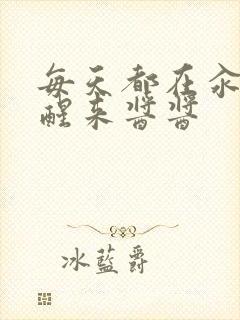 每天都在汆
醒来酱酱
冰蓝爵